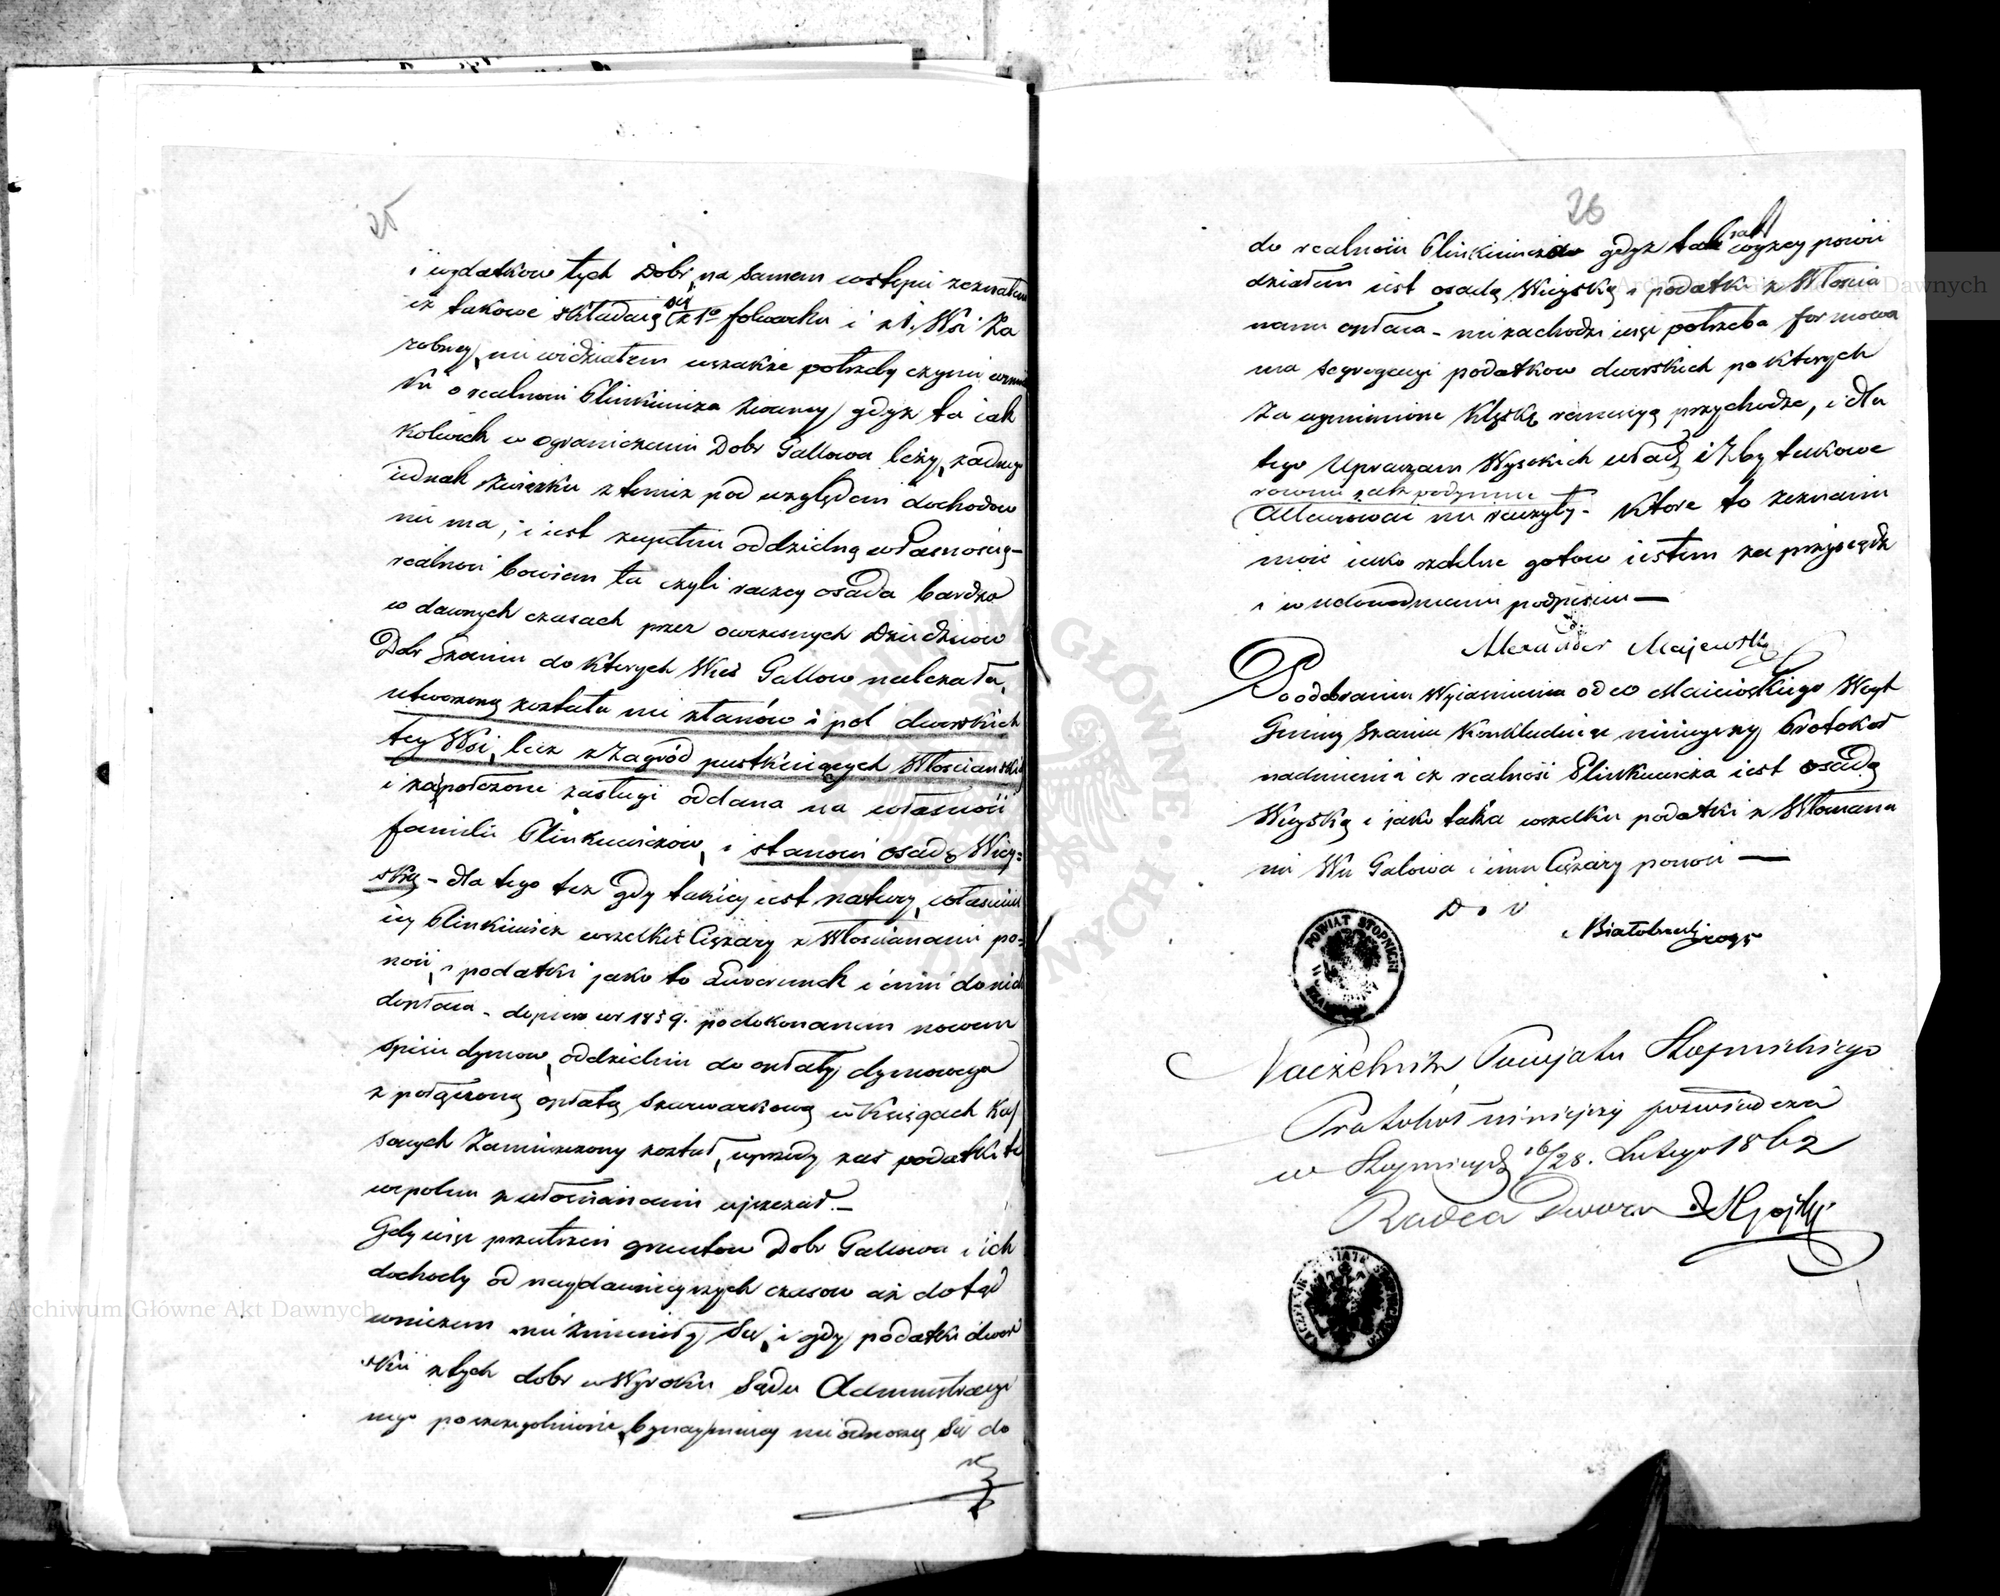 25
i wydatków tych Dobr, na samem wstępie zeznałem
iż takowe składaią się z 1o folwarku i z 1. Wsi Za
robney, nie widziałem wszakże potrzeby czynić wzmian
ki o realnosci Olinkiewicza zwaney, gdyż ta iak
kolwiek w ograniczeniu Dobr Gallowa leży, żadnego
iednak związku z temiż pod względem dochodow
nie ma, i iest zupełnie oddzielną własnością –
realnosc bowiem ta czyli raczey osada bardzo
w dawnych czasach przez owczesnych Dziedziców
Dobr Szaniec do ktorych Wieś Gallow należała,
utworzoną została nie z łanów i pol dworskich
tey Wsi, lecz z zagród pustkuiących Włosciańskich
i za położone zasługi oddana na własność
familii Olinkiewiczow, i stanowi osadę Wiey=
ską – dla tego też gdy takiey iest natury, właściciel
iey Olinkiewicz wszelkie Ciężary z Włoscianami po=
nosi, i podatki jako to Liwerunek i inne do nich
dopłaca – dopiero w r 1859. po dokonanem nowem
spisu dymow, oddzielnie do opłaty dymowego
z połączoną opłatą Szarwarkową w Księgach Kas
sowych zamieszczony został, wprzódy zaś podatki te
wspolnie z włoscianami uiszczał. –
Gdy więc przestrzeń gruntow Dobr Gallowa i ich
dochody od naydawnieyszych czasow aż dotąd
w niczem nie zmieniły się, i gdy podatki dwor
skie z tych dobr w Wyroku Sądu Administracyi
nego poszczegolnione, bynaymniey nie odnoszą się do
26
do realności Olinkiewicza gdyż ta jak wyżey powie
działem iest osadą Wieyską i podatki z Włościa
nami opłaca – nie zachodzi więc potrzeba formowa
nia segregacyi podatkow dworskich po ktorych
za wymienione klęskę remisyą przychodzi, i dla
tego Upraszam Wysokich władz iżby takowe
Allewiować nie raczyły – Ktore to zeznanie
moie iako rzetelne gotow iestem zaprzysiądz
i w udowodnieniu podpisuie —
Alexander Majewski
Po odebraniu Wyiasnienia od W Maiewskiego Woyt
Gminy Szaniec Konkludując ninieyszy Protokoł
nadmienia iż realność Olinkiewicza iest osadą
Wieyską i jako taka wszelkie podatki z Włosciana
mi Wsi Galowa i inne Ciężary ponosi —
D. i V
Białobrzeski
POWIAT STOPNICKI
Naczelnik Powiatu Stopnickiego
Protokoł niniejszy poswiadcza
w Stopnicy d 16/28. Lutego 1862
Radca Dworu
Archiwum Główne Akt Dawnych
Archiwum Główne Akt Dawnych